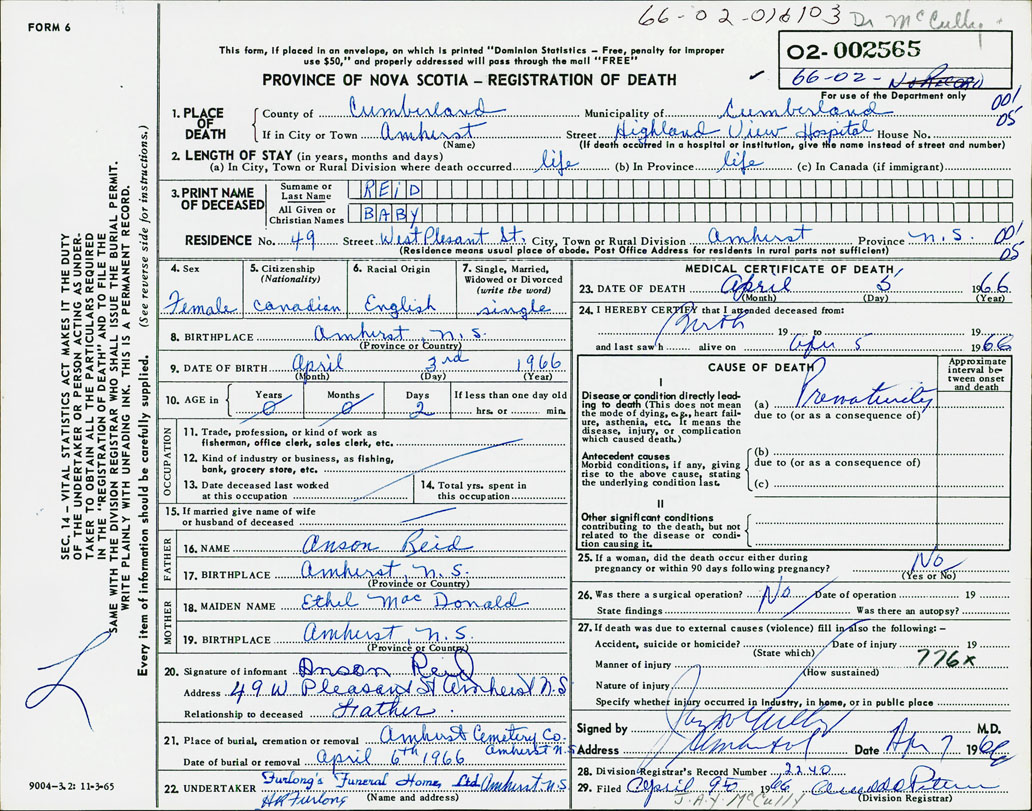 FORM 6
66-02-016103 Dr McCully
This form, if placed in an envelope, on which is printed "Dominion Statistics – Free, penalty for improper
use $50," and properly addressed will pass through the mail "FREE"
PROVINCE OF NOVA SCOTIA – REGISTRATION OF DEATH
02-002565
66-02- No Record
For use of the Department only
001
05
1. PLACE OF DEATH
County of Cumberland Municipality of Cumberland
If in City or Town Amherst Street Highland View Hospital House No.
(Name) (If death occurred in a hospital or institution, give the name instead of street and number)
2. LENGTH OF STAY (in years, months and days)
(a) In City, Town or Rural Division where death occurred life (b) In Province life (c) In Canada (if immigrant)
3. PRINT NAME OF DECEASED
Surname or Last Name REID
All Given or Christian Names BABY
RESIDENCE No. 49 Street West Plesant St. City, Town or Rural Division Amherst Province N.S. 001
05
(Residence means usual place of abode. Post Office Address for residents in rural parts not sufficient)
4. Sex
Female
5. Citizenship
(Nationality)
Canadian
6. Racial Origin
English
7. Single, Married,
Widowed or Divorced
(write the word)
single
8. BIRTHPLACE Amherst, N.S.
(Province or Country)
9. DATE OF BIRTH April 3rd 1966
(Month) (Day) (Year)
10. AGE in Years 0 Months 0 Days 2 If less than one day old
hrs. or min.
OCCUPATION
11. Trade, profession, or kind of work as
fisherman, office clerk, sales clerk, etc.
12. Kind of industry or business, as fishing,
bank, grocery store, etc.
13. Date deceased last worked
at this occupation
14. Total yrs. spent in
this occupation
15. If married give name of wife
or husband of deceased
FATHER
16. NAME Anson Reid
17. BIRTHPLACE Amherst, N.S.
(Province or Country)
MOTHER
18. MAIDEN NAME Ethel MacDonald
19. BIRTHPLACE Amherst, N.S.
(Province or Country)
20. Signature of informant Anson Reid
Address 49 W Pleasant St Amherst N.S
Relationship to deceased Father.
21. Place of burial, cremation or removal Amherst Cemetery Co.
Amherst N.S
Date of burial or removal April 6th 1966
22. UNDERTAKER Furlong's Funeral Home, Ltd Amherst N.S.
(Name and address)
Furlong
MEDICAL CERTIFICATE OF DEATH
23. DATE OF DEATH April 5 1966
(Month) (Day) (Year)
24. I HEREBY CERTIFY that I attended deceased from:
Birth 19 to
and last saw h alive on Apr 5 1966
CAUSE OF DEATH
Approximate
interval be-
tween onset
and death
I
Disease or condition directly lead-
ing to death (This does not mean
the mode of dying, e.g., heart fail-
ure, asthenia, etc. It means the
disease, injury, or complication
which caused death.)
(a) Prematurity
due to (or as a consequence of)
Antecedent causes
Morbid conditions, if any, giving
rise to the above cause, stating
the underlying condition last.
(b)
due to (or as a consequence of)
(c)
II
Other significant conditions
contributing to the death, but not
related to the disease or condi-
tion causing it.
25. If a woman, did the death occur either during
pregnancy or within 90 days following pregnancy? No
(Yes or No)
26. Was there a surgical operation? No Date of operation 19
State findings Was there an autopsy?
27. If death was due to external causes (violence) fill in also the following: –
Accident, suicide or homicide? Date of injury 19
(State which)
776x
Manner of injury
(How sustained)
Nature of injury
Specify whether injury occurred in industry, in home, or in public place
Signed by M.D.
Address Amherst Date Apr 7 1966
28. Division Registrar's Record Number 2240
29. Filed April 9th 1966
J.A.Y. McCully (Division Registrar)
SEC. 14 – VITAL STATISTICS ACT MAKES IT THE DUTY
OF THE UNDERTAKER OR PERSON ACTING AS UNDER-
TAKER TO OBTAIN ALL THE PARTICULARS REQUIRED
IN THE "REGISTRATION OF DEATH" AND TO FILE THE
SAME WITH THE DIVISION REGISTRAR WHO SHALL ISSUE THE BURIAL PERMIT.
WRITE PLAINLY WITH UNFADING INK. THIS IS A PERMANENT RECORD.
Every item of information should be carefully supplied. (See reverse side for instructions.)
9004-3.2: 11-3-65